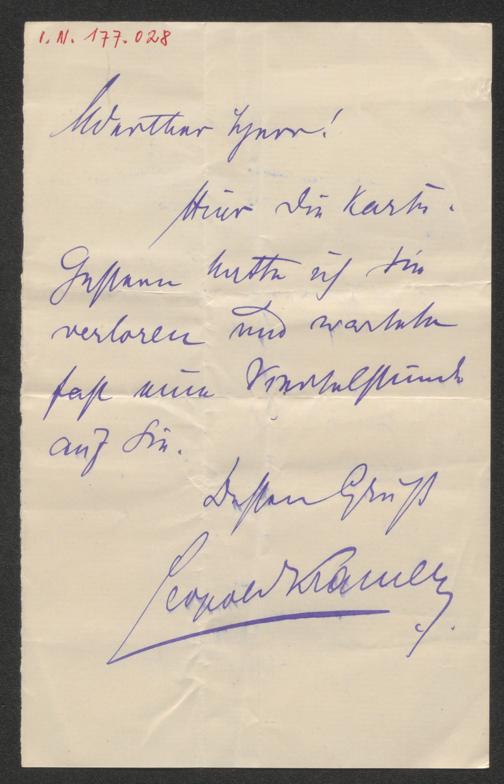 I. N. 177.028
Werther Herr!
Hier die Karte.
Gestern hatte ich Sie
verloren und wartete
fast eine Viertelstunde
auf Sie.
Besten Gruß
Leopold Kramer